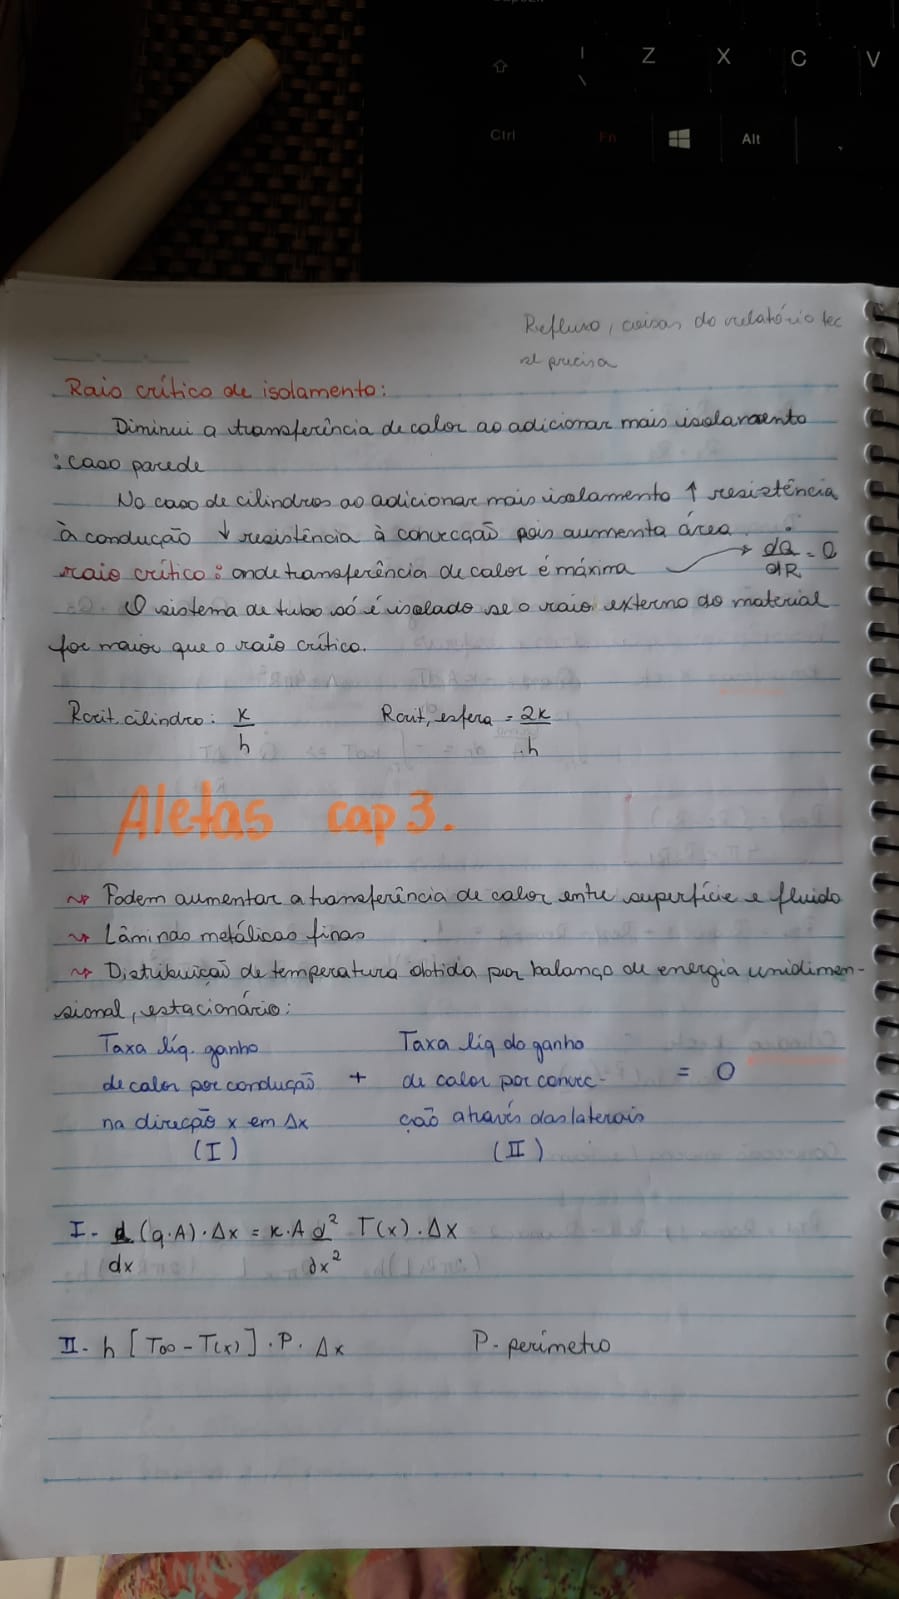 Z X C V
Ctrl Fn Alt
Refluxo, coisas do relatório tec
se precisa
Raio crítico de isolamento:
Diminui a transferência de calor ao adicionar mais isolamento
: caso parede
No caso de cilindros ao adicionar mais isolamento ↑ resistência
à condução ↓ resistência à convecção pois aumenta área.
raio crítico: onde transferência de calor é máxima → dq/dR = 0
O sistema de tubo só é isolado se o raio externo do material
for maior que o raio crítico.
Rcrit. cilindro: k/h Rcrit, esfera = 2k/h
Aletas cap 3.
~> Podem aumentar a transferência de calor entre superfície e fluido
~> Lâminas metálicas finas
~> Distribuição de temperatura obtida por balanço de energia unidimen-
sional, estacionário:
Taxa líq. ganho Taxa líq do ganho
de calor por condução + de calor por convec- = 0
na direção x em Δx ção através das laterais
(I) (II)
I- d/dx (q.A).Δx = k.A d²/dx² T(x).Δx
II- h [T∞ - T(x)].P.Δx P- perímetro